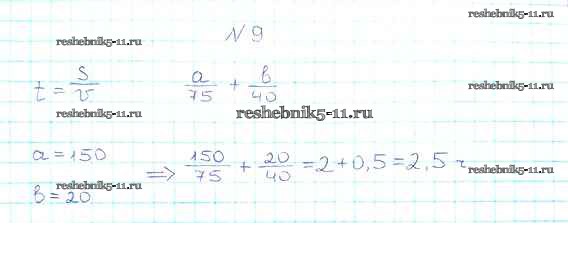 reshebnik5-11.ru
reshebnik5-11.ru
N 9
t = S/v
a/75 + в/40
reshebnik5-11.ru
reshebnik5-11.ru
reshebnik5-11.ru
a = 150
⇒ 150/75 + 20/40 = 2 + 0,5 = 2,5 ч
reshebnik5-11.ru
reshebnik5-11.ru
в = 20